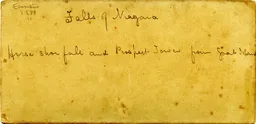 Falls of Niagara
Horse shoe fall and Prospect Tower from Goat Island